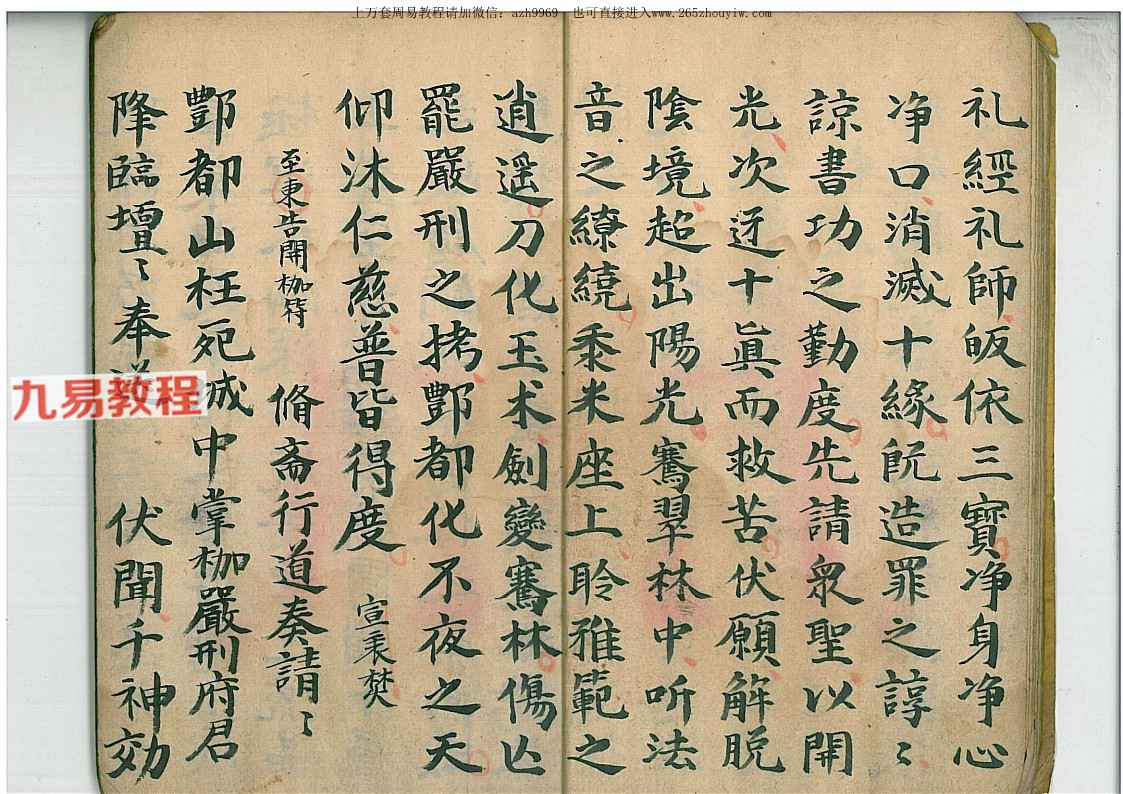 上万套周易教程请加微信：azh9969 也可直接进入www.265zhouyiw.com
礼經礼師皈依三寶净身净心
净口消滅十緣既造罪之諄〻
諒書功之勤度先請衆聖以開
光次迓十真而救苦伏願解脱
陰境超出陽光騫翠林中听法
音之繚繞黍米座上聆雅範之
逍遥刀化玉术劍變騫林傷亡
罷嚴刑之拷酆都化不夜之天
仰沐仁慈普皆得度 宣秉焚
至東告開枷符 脩斋行道奏請〻
酆都山枉死城中掌枷嚴刑府君
降臨壇〻奉送 伏聞千神効
九易教程